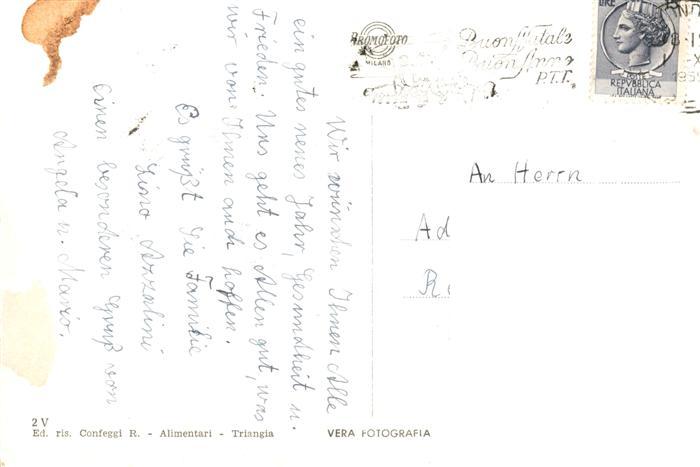 Wir wünschen Ihnen Alle
ein gutes neues Jahr, Gesundheit u.
Frieden. Uns geht es Allen gut, was
wir von Ihnen auch hoffen.
Es grüßt Sie Familie
Lino Azzalini
einen besonderen Gruß von
Angela u. Mario.
PROMOFOTO
MILANO
Buon Natale
Buon Anno
P.T.T.
LIRE
POSTE
REPVBBLICA
ITALIANA
An Herrn
Ad
R
2 V
Ed. ris. Confeggi R. - Alimentari - Triangia
VERA FOTOGRAFIA